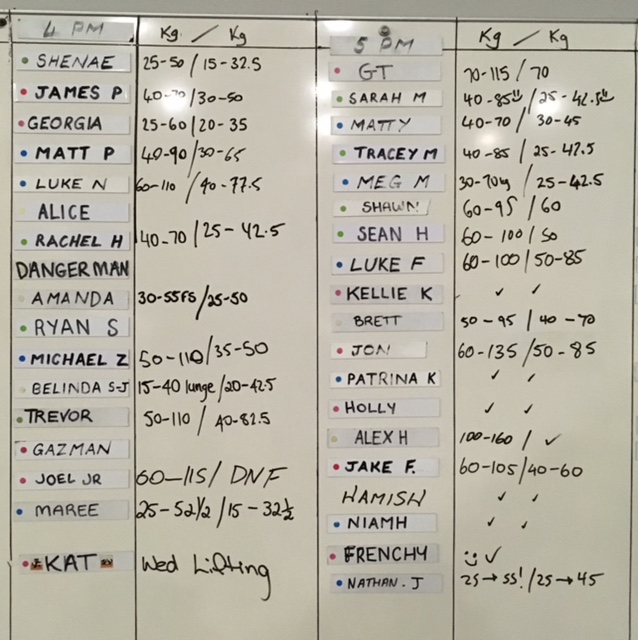 4 PM Kg / Kg
SHENAE 25-50 / 15-32.5
JAMES P 40-70 / 30-50
GEORGIA 25-60 / 20-35
MATT P 40-90 / 30-65
LUKE N 60-110 / 40-77.5
ALICE
RACHEL H 40-70 / 25-42.5
DANGERMAN
AMANDA 30-55FS / 25-50
RYAN S
MICHAEL Z 50-110 / 35-50
BELINDA S-J 15-40 lunge / 20-42.5
TREVOR 50-110 / 40-82.5
GAZMAN
JOEL JR 60-115 / DNF
MAREE 25-52 1/2 / 15-32 1/2
KAT Wed Lifting
5 PM Kg / Kg
GT 70-115 / 70
SARAH M 40-85 / 25-42.5
MATTY 40-70 / 30-45
TRACEY M 40-85 / 25-47.5
MEG M 30-70kg / 25-42.5
SHAWN 60-95 / 60
SEAN H 60-100 / 50
LUKE F 60-100 / 50-85
KELLIE K ✓ ✓
BRETT 50-95 / 40-70
JON 60-135 / 50-85
PATRINA K ✓ ✓
HOLLY ✓ ✓
ALEX H 100-160 / ✓
JAKE F. 60-105 / 40-60
HAMISH ✓ ✓
NIAMH ✓ ✓
FRENCHY ✓
NATHAN. J 25→55! / 25→45